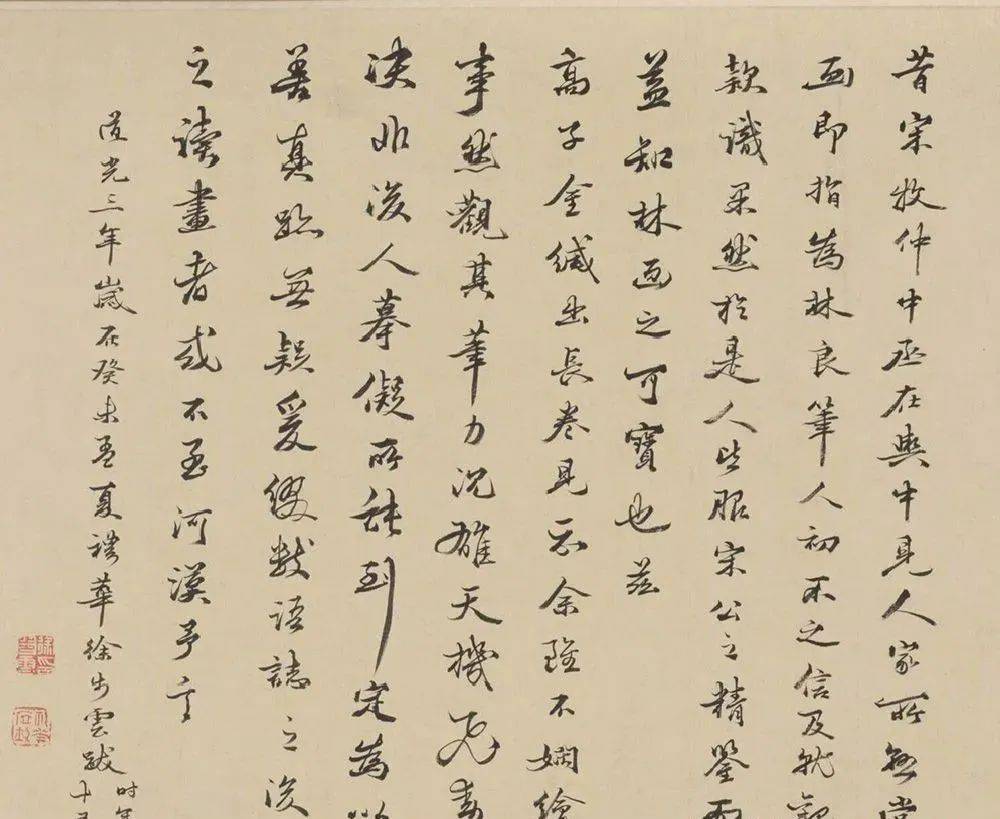 昔宋牧仲中丞在輿中見人家所懸堂
画即指為林良筆人初不之信及就観
款識果然於是人皆服宋公之精鑒而
益知林画之可寶也茲
高子金緘出長卷見示余雖不嫻繪
事然觀其筆力沉雄天機飛動
决非後人摹儗所能到定為以
善真跡無疑爰綴數語誌之後
之讀畫者或不至河漢予言
道光三年歲在癸未孟夏禮華徐步雲跋
时年
十